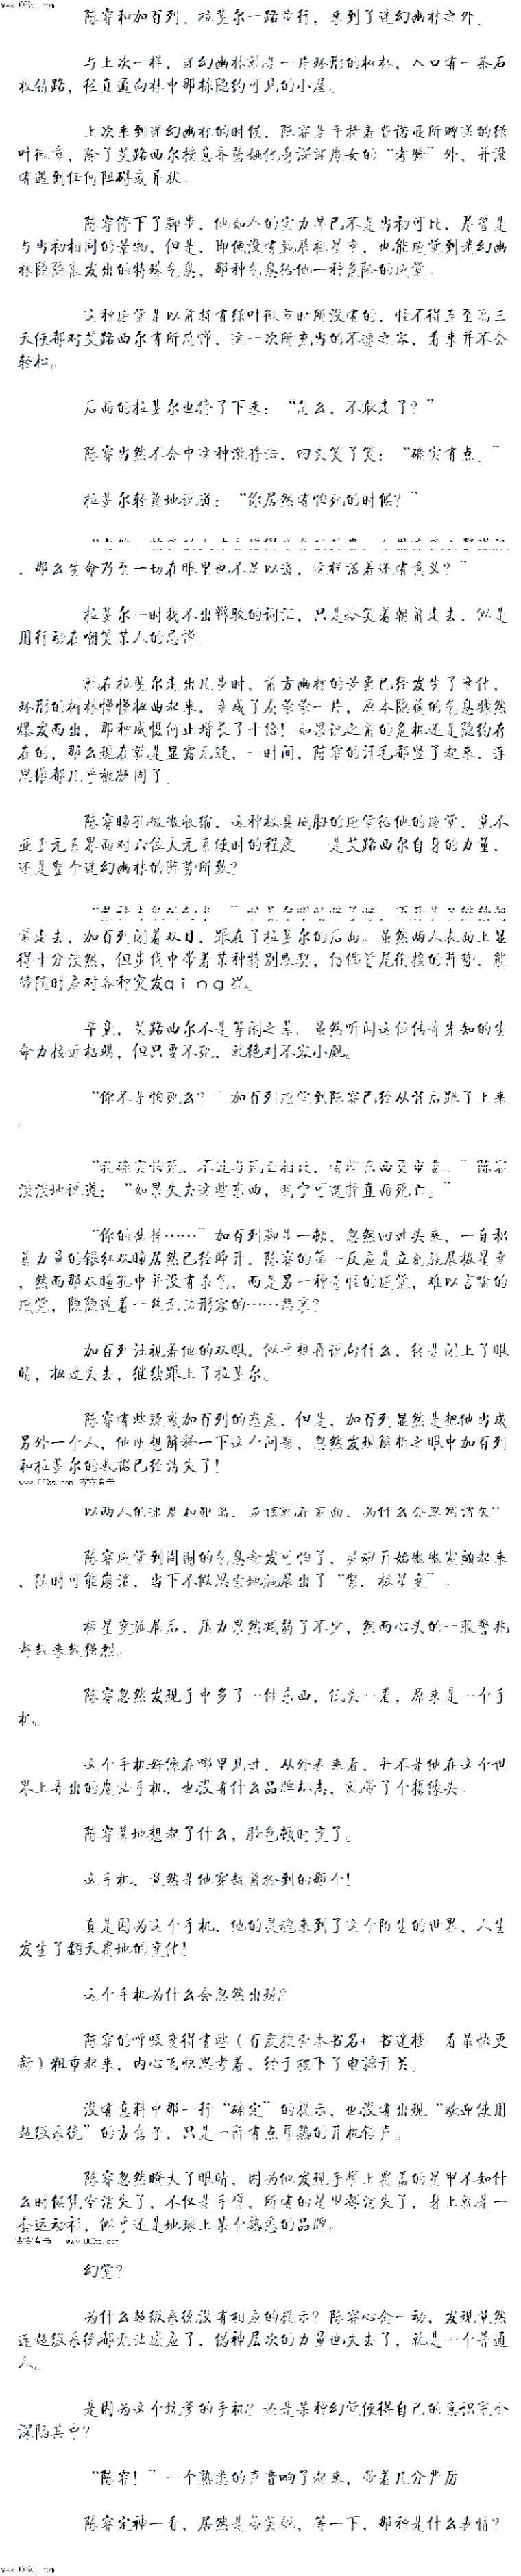 陈睿和加百列、拉斐尔一路步行，来到了迷幻幽林之外。
与上次一样，迷幻幽林就是一片环形的树林，入口有一条石
板铺路，径直通向林中那栋隐约可见的小屋。
上次来到迷幻幽林的时候，陈睿是手持着
叶徽章，除了艾路西尔授意 的“考验”外，并没
有遇到任何阻碍或异状。
陈睿停下了脚步，他如今的实力早已不是当初可比，尽管是
与当初相同的景物，但是，即使没有施展极星变，也能感觉到迷幻幽
林隐隐散发出的特殊气息，那种气息给他一种危险的感觉。
这种感觉是以前持有绿叶徽章时所没有的，怪不得连至高三
天使都对艾路西尔有所忌惮，这一次所充当的不速之客，看来并不会
轻松。
后面的拉斐尔也停了下来：“怎么，不敢走了？”
陈睿当然不会中这种激将法，回头笑了笑：“确实有点。”
拉斐尔轻蔑地说道：“你居然有怕死的时候？”
，那么生命乃至一切在眼里也不足以道，这样活着还有意义？”
拉斐尔一时找不出辩驳的词汇，只是冷笑着朝前走去，似是
用行动在嘲笑某人的忌惮。
就在拉斐尔走出几步时，前方幽林的景象已经发生了变化，
环形的树林慢慢扭曲起来，变成了灰蒙蒙一片，原本隐藏的气息骤然
爆发而出，那种威慑何止增长了十倍！如果说之前的危机还是隐约存
在的，那么现在就是显露无疑，一时间，陈睿的汗毛都竖了起来，连
思维都几乎被凝固了。
陈睿瞳孔微微收缩，这种极具威胁的感觉给他的感觉，竟不
亚于元素界面对六位大元素使时的程度 是艾路西尔自身的力量，
还是整个迷幻幽林的阵势所致？
前走去，加百列闭着双目，跟在了拉斐尔的后面。虽然两人表面上显
得十分淡然，但步伐中带着某种特别默契，仿佛首尾衔接的阵势，能
够随时应对各种突发qing况。
毕竟，艾路西尔不是等闲之辈。虽然听闻这位传奇先知的生
命力接近枯竭，但只要不死，就绝对不容小觑。
“你不是怕死么？”加百列感觉到陈睿已经从背后跟了上来
。
“我确实怕死，不过与死亡相比，有些东西更重要。”陈睿
淡淡地说道：“如果失去这些东西，我宁可选择直面死亡。”
“你的选择……”加百列脚步一顿，忽然回过头来，一直积
蓄力量的银红双瞳居然已经睁开，陈睿的第一反应是立刻施展极星变
，然而那双瞳孔中并没有杀气，而是另一种奇怪的感觉，难以言喻的
感觉，隐隐透着一丝无法形容的……悲哀？
加百列注视着他的双眼，似乎想再说句什么，终是闭上了眼
睛，扭过头去，继续跟上了拉斐尔。
陈睿有些疑惑加百列的态度，但是，加百列显然是把他当成
另外一个人，他刚想解释一下这个问题，忽然发现解析之眼中加百列
和拉斐尔的数据已经消失了！
以两人的速度和距离，应该就在前面，为什么会忽然消失？
陈睿感觉到周围的气息愈发可怕了，灵魂开始微微震颤起来
，随时可能崩溃，当下不假思索地施展出了“紫．极星变”。
极星变施展后，压力果然减弱了不少，然而心头的一股警兆
却越来越强烈。
陈睿忽然发现手中多了一件东西，低头一看，原来是一个手
机。
这个手机好像在哪里见过，从外表来看，并不是他在这个世
界上弄出的魔法手机，也没有什么品牌标志，就带了个摄像头。
陈睿蓦地想起了什么，脸色顿时变了。
这手机，竟然是他穿越前捡到的那个！
真是因为这个手机，他的灵魂来到了这个陌生的世界，人生
发生了翻天覆地的变化！
这个手机为什么会忽然出现？
陈睿的呼吸变得有些（百度搜索本书名+书道楼 看最快更
新）粗重起来，内心飞快思考着，终于按下了电源开关。
没有意料中那一行“确定”的提示，也没有出现“欢迎使用
超级系统”的方舍子，只是一阵有点耳熟的开机铃声。
陈睿忽然瞪大了眼睛，因为他发现手臂上覆盖的星甲不知什
么时候凭空消失了，不仅是手臂，所有的星甲都消失了，身上就是一
套运动衫，似乎还是地球上某个熟悉的品牌。
幻觉？
为什么超级系统没有相应的提示？陈睿心念一动，发现竟然
连超级系统都无法感应了，伪神层次的力量也失去了，就是一个普通
人。
是因为这个坑爹的手机？还是某种幻觉使得自己的意识完全
深陷其中？
“陈睿！”一个熟悉的声音响了起来，带着几分严厉。
陈睿定神一看，居然是 ，等一下，那种是什么表情？